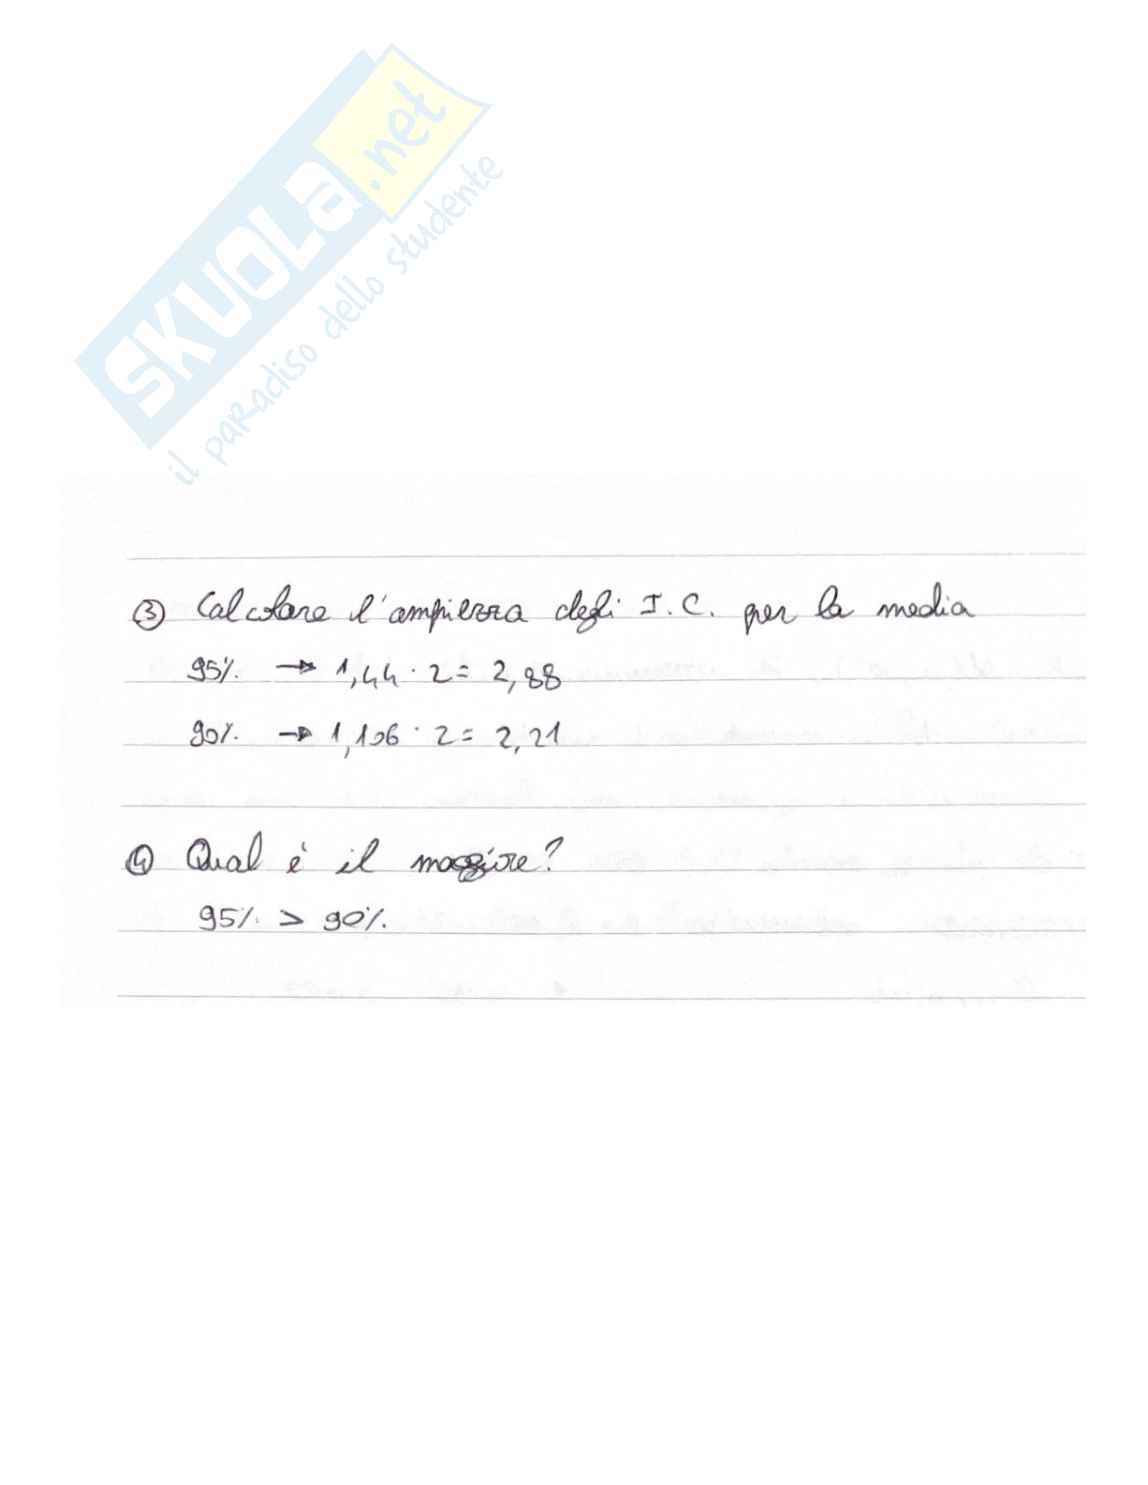 SKUOLA.net
il paradiso dello studente
③ Calcolare l'ampiezza degli I.C. per la media
95% → 1,44 · 2 = 2,88
90% → 1,106 · 2 = 2,21
④ Qual è il maggiore?
95% > 90%.